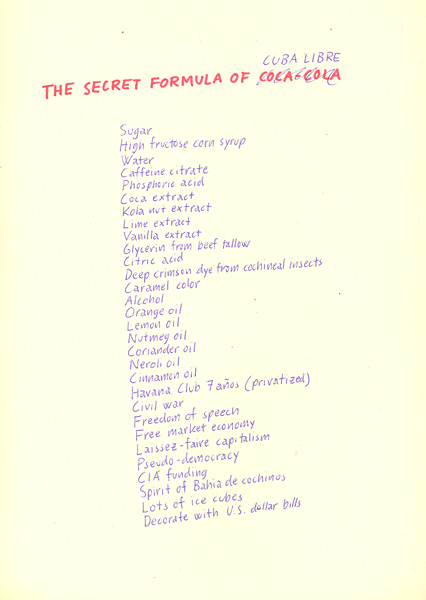 CUBA LIBRE
THE SECRET FORMULA OF COCA-COLA
Sugar
High fructose corn syrup
Water
Caffeine citrate
Phosphoric acid
Coca extract
Kola nut extract
Lime extract
Vanilla extract
Glycerin from beef tallow
Citric acid
Deep crimson dye from cochineal insects
Caramel color
Alcohol
Orange oil
Lemon oil
Nutmeg oil
Coriander oil
Neroli oil
Cinnamon oil
Havana Club 7 años (privatized)
Civil war
Freedom of speech
Free market economy
Laissez-faire capitalism
Pseudo-democracy
CIA funding
Spirit of Bahia de cochinos
Lots of ice cubes
Decorate with U.S. dollar bills